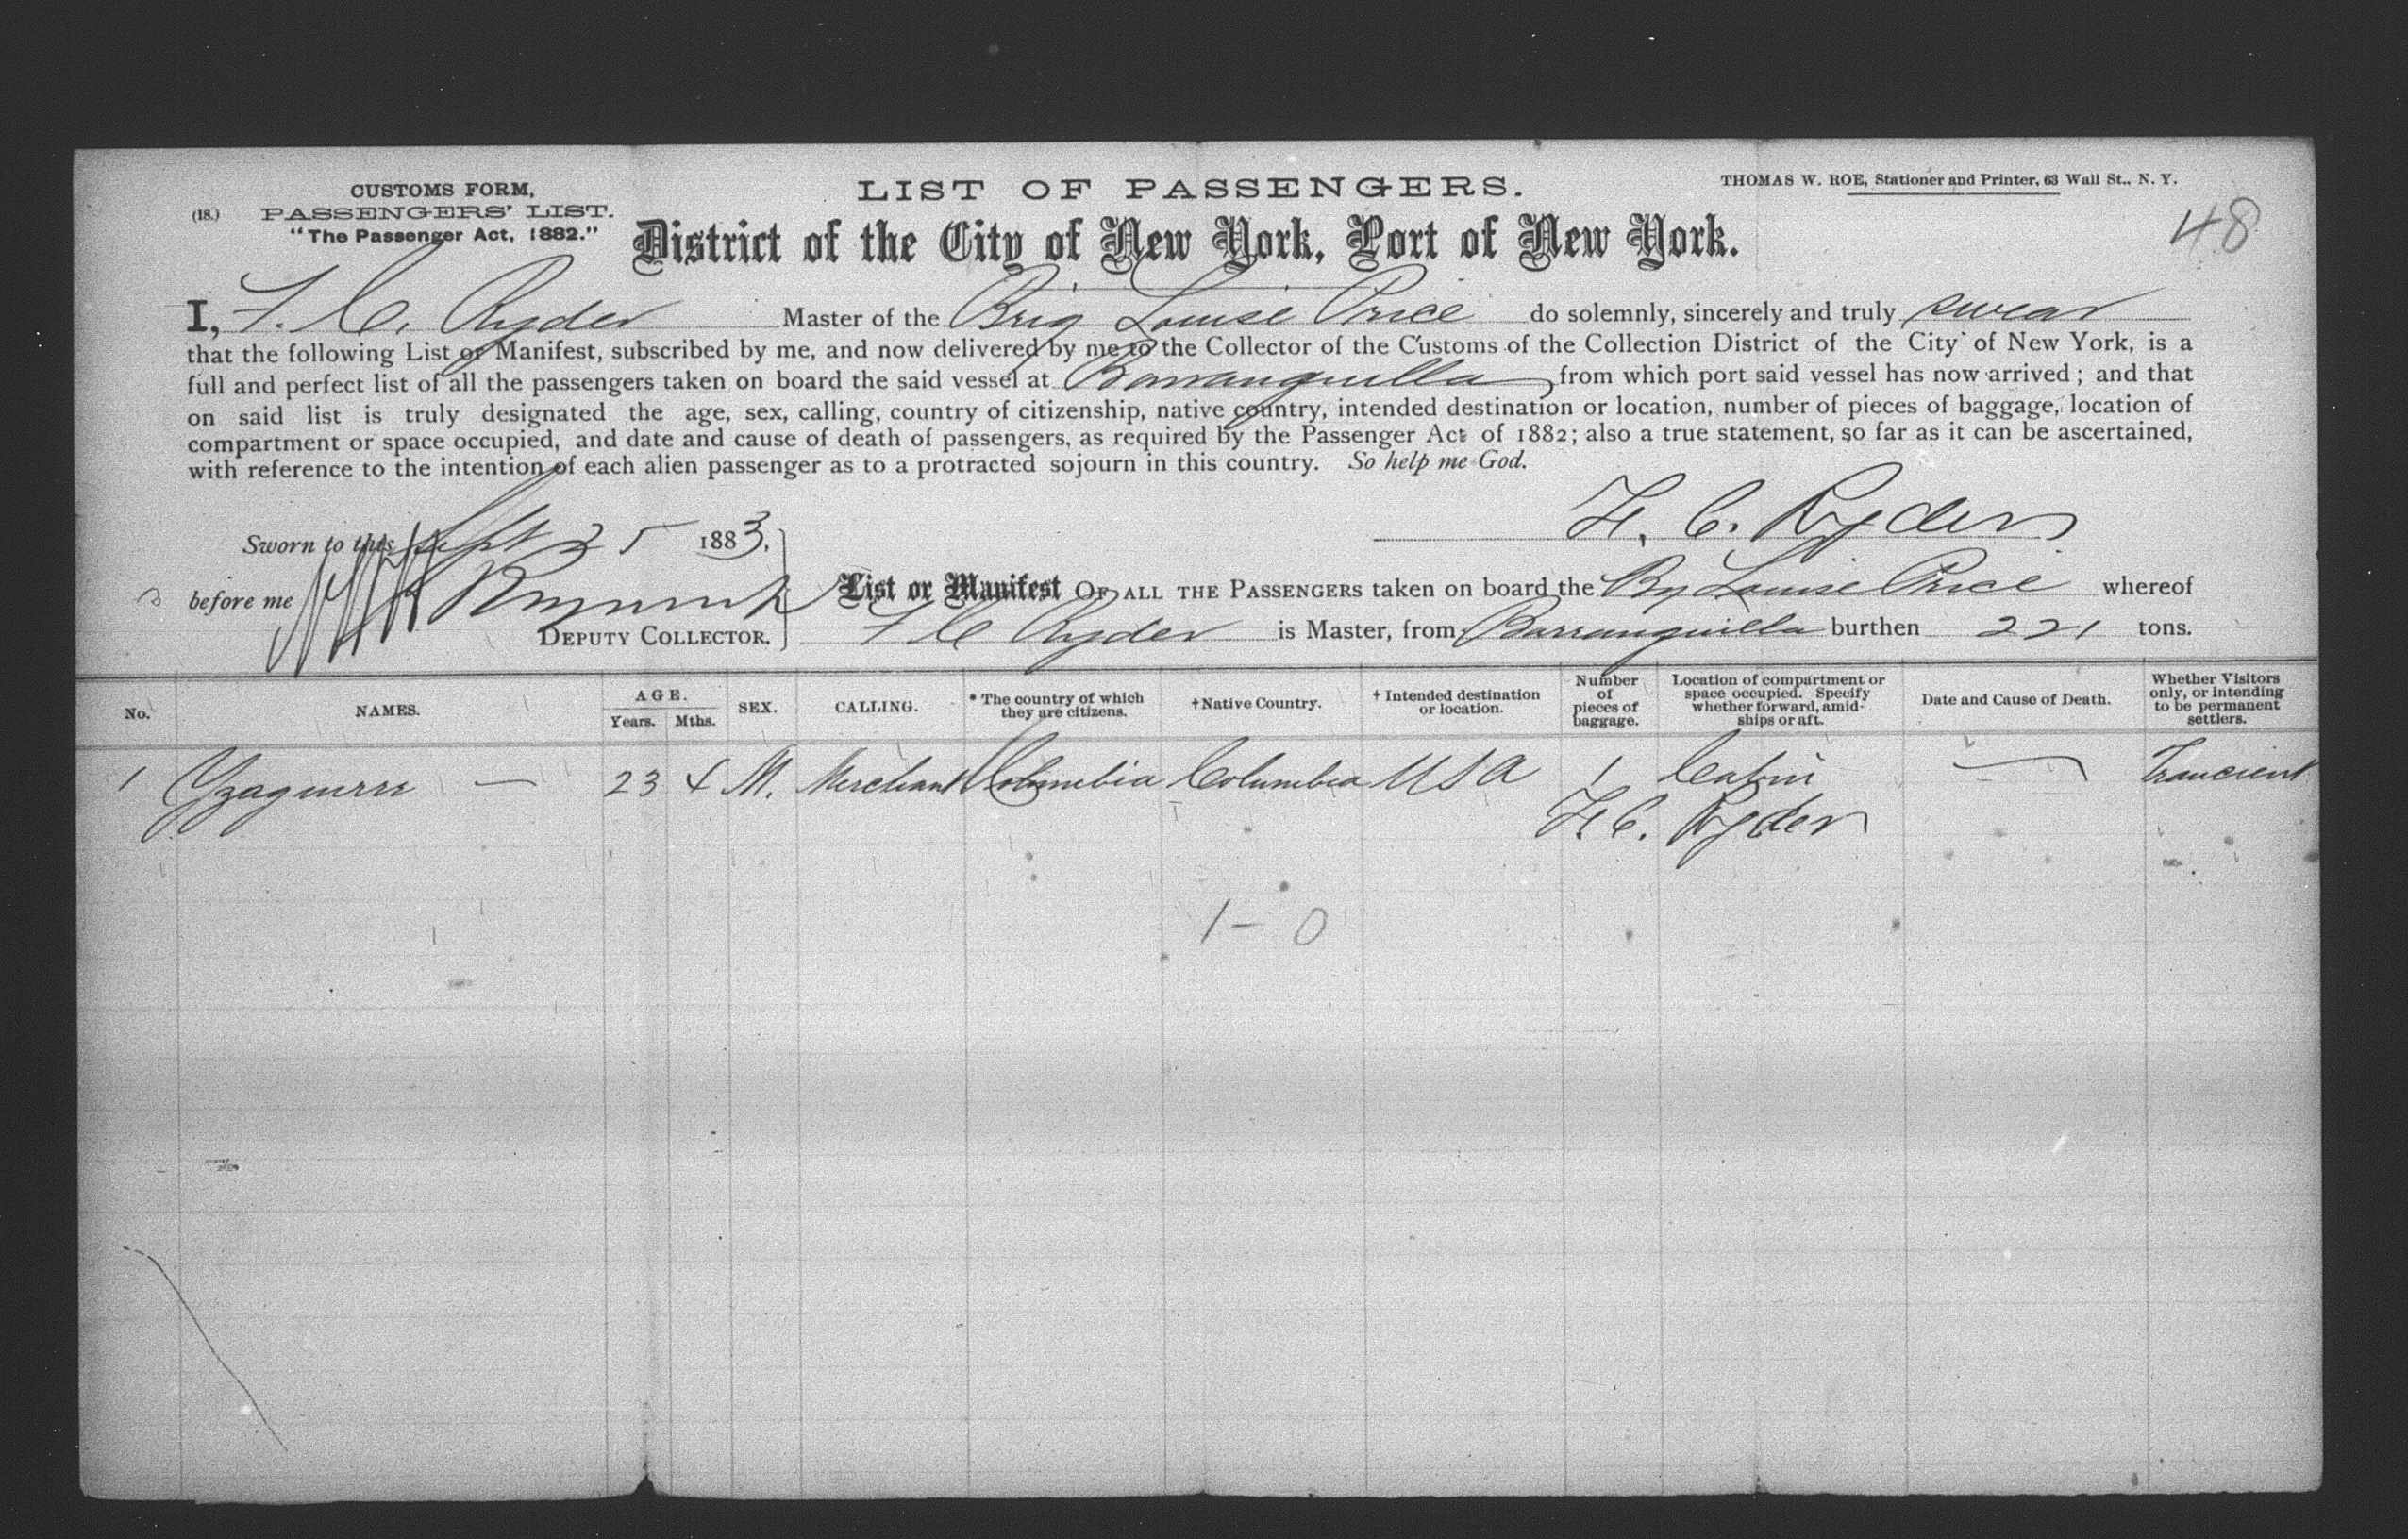 CUSTOMS FORM,
(18.) PASSENGERS' LIST.
"The Passenger Act, 1882."
LIST OF PASSENGERS.
THOMAS W. ROE, Stationer and Printer, 63 Wall St., N. Y.
District of the City of New York, Port of New York.
48
I, F. C. Ryder Master of the Brig Louise Price do solemnly, sincerely and truly swear
that the following List or Manifest, subscribed by me, and now delivered by me to the Collector of the Customs of the Collection District of the City of New York, is a
full and perfect list of all the passengers taken on board the said vessel at Barranquilla from which port said vessel has now arrived; and that
on said list is truly designated the age, sex, calling, country of citizenship, native country, intended destination or location, number of pieces of baggage, location of
compartment or space occupied, and date and cause of death of passengers, as required by the Passenger Act of 1882; also a true statement, so far as it can be ascertained,
with reference to the intention of each alien passenger as to a protracted sojourn in this country. So help me God.
F. C. Ryder
Sworn to this Sept 25 1883,
before me
DEPUTY COLLECTOR.
List or Manifest OF ALL THE PASSENGERS taken on board the Bg Louise Price whereof
F C Ryder is Master, from Barranquilla burthen 221 tons.
No. NAMES. AGE. Years. Mths. SEX. CALLING. * The country of which they are citizens. † Native Country. † Intended destination or location. Number of pieces of baggage. Location of compartment or space occupied. Specify whether forward, amidships or aft. Date and Cause of Death. Whether Visitors only, or intending to be permanent settlers.
1 Yzaguirre — 23 4 M. Merchant Columbia Columbia USA 1 Cabin — Trancient
F. C. Ryder
1 - 0